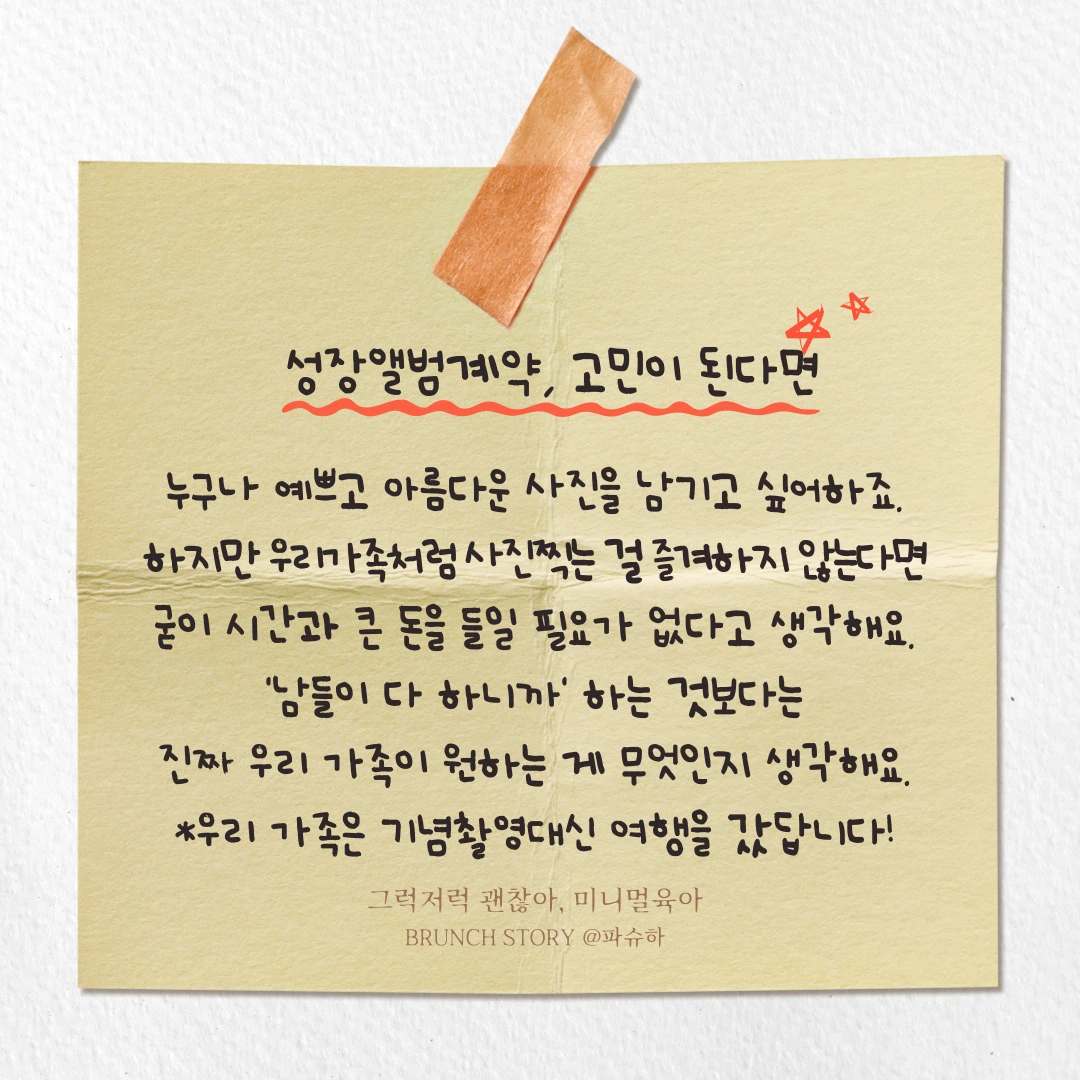 성장앨범계약, 고민이 된다면
누구나 예쁘고 아름다운 사진을 남기고 싶어하죠.
하지만 우리가족처럼 사진찍는 걸 즐겨하지 않는다면
굳이 시간과 큰 돈을 들일 필요가 없다고 생각해요.
'남들이 다 하니까' 하는 것보다는
진짜 우리 가족이 원하는 게 무엇인지 생각해요.
*우리 가족은 기념촬영대신 여행을 갔답니다!
그럭저럭 괜찮아, 미니멀육아
BRUNCH STORY @파슈하